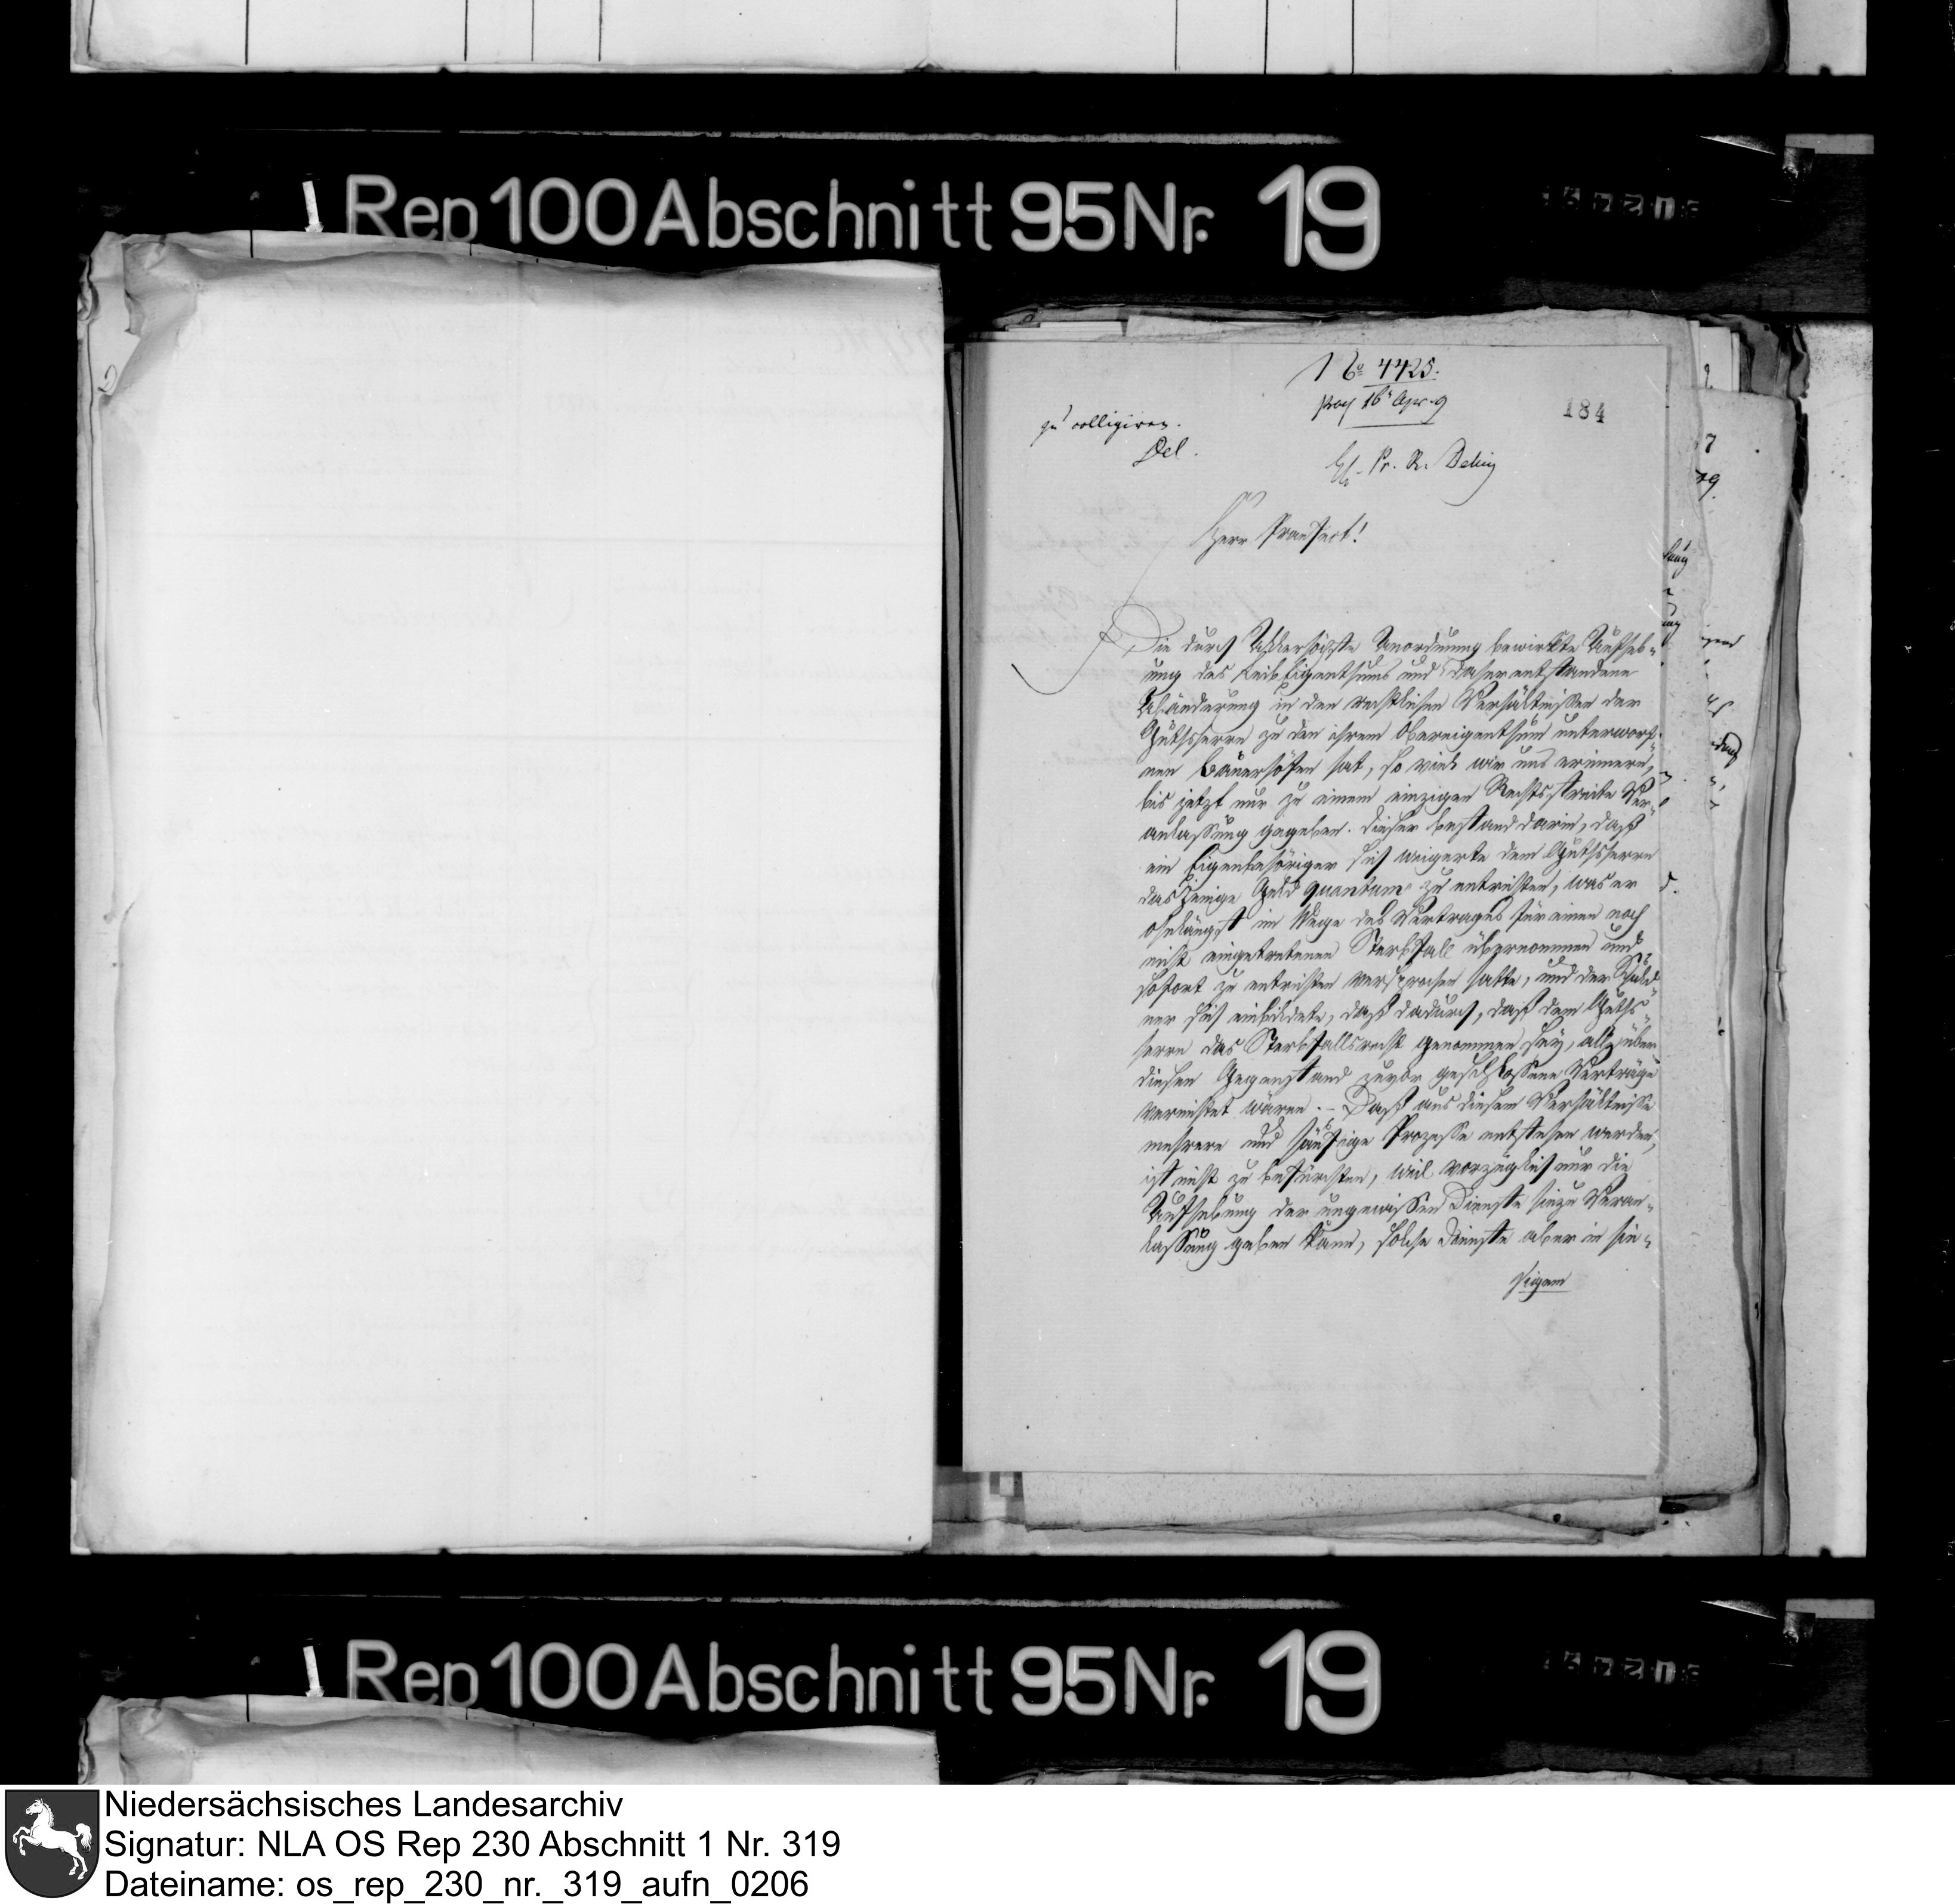 Rep 100 Abschnitt 95 Nr. 19
No 4425.
16t Apr. 9
184
zu colligiren.
Del.
Pr. R. Delius
Herr Praefect!
Die durch Allerhöchste Anordnung bewirkte Aufheb-
ung des Leib Eigenthums und daher entstandene
Abänderung in den rechtlichen Verhältnissen der
Guthsherrn zu den ihrem Obereigenthum unterworf-
nen Bauerhöfen hat, so viel wir uns erinnern,
bis jetzt nur zu einem einzigen Rechtsstreite Ver-
anlassung gegeben. Dieser bestand darin, daß
ein Eigenbehöriger sich weigerte dem Guthsherrn
dasjenige Geld quantum zu entrichten, was er
ohnlängst im Wege des Vertrages für einen noch
nicht eingetretenen Sterbfall übernommen und
sofort zu entrichten versprochen hatte, und der Schuld-
ner sich einbildete, daß dadurch, daß dem Guths-
herrn das Sterbfallsrecht genommen sey, alle über
diesen Gegenstand zuvor geschlossene Verträge
vernichtet wären. - Daß aus diesem Verhältnisse
mehrere und häufige Prozesse entstehen werden,
ist nicht zu befürchten, weil vorzüglich nur die
Aufhebung der ungewissen Dienste hiezu Veran-
lassung geben kann, solche Dienste aber in hie-
sigem
Rep 100 Abschnitt 95 Nr. 19
Niedersächsisches Landesarchiv
Signatur: NLA OS Rep 230 Abschnitt 1 Nr. 319
Dateiname: os_rep_230_nr._319_aufn_0206